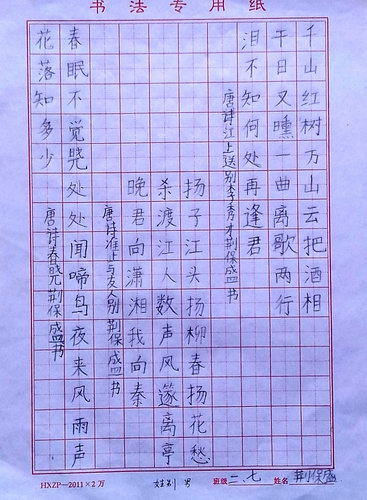 书法专用纸
千山红树万山云把酒相
干日又曛一曲离歌两行
泪不知何处再逢君
唐诗江上送别李秀才荆保盛书
扬子江头扬柳春扬花愁
杀渡江人数声风篴离亭
晚君向潇湘我向秦
唐诗淮上与友人别荆保盛书
春眠不觉晓处处闻啼鸟夜来风雨声
花落知多少
唐诗春晓荆保盛书
HXZP—2011×2万 姓别 男 班级 二、七 姓名 荆保盛